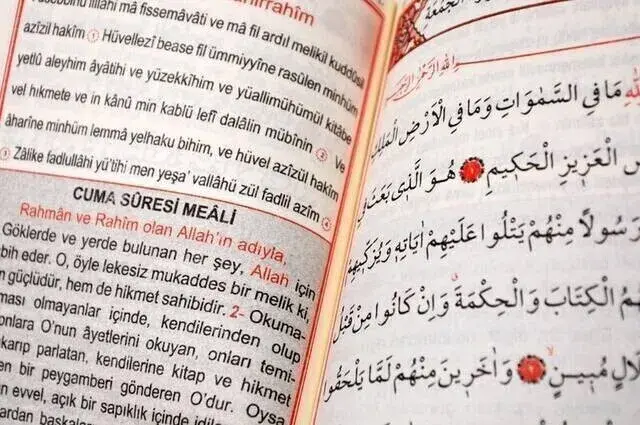 fissemâvâti ve mâ fil ardıl melikil kuddûsil
azîzil hakîm 1 Hüvellezî bease fil ümmiyyîne rasûlen minhüm
yetlû aleyhim âyâtihi ve yüzekkîhim ve yüallimühümül kitâbe
vel hıkmete ve in kânû min kablü lefî dalâlin mübînîn 2 Ve
âharîne minhüm lemmâ yelhaku bihim, ve hüvel azîzül hakîm
3 Zâlike fadlullâhi yü'tîhi men yeşa' vallâhü zül fadlil azîm 4
CUMA SÛRESİ MEÂLİ
Rahmân ve Rahîm olan Allah'ın adıyla,
Göklerde ve yerde bulunan her şey, Allah için
bih eder. O, öyle lekesiz mukaddes bir melik ki,
n güçlüdür, hem de hikmet sahibidir. 2- Okuma-
ması olmayanlar içinde, kendilerinden olup
onlara O'nun âyetlerini okuyan, onları temi-
karıp parlatan, kendilerine kitap ve hikmet
en bir peygamberi gönderen O'dur. Oysa
n evvel, açık bir sapıklık içinde idile
ardan başkala
مَا فِي السَّمٰوَاتِ وَمَا فِي الْاَرْضِ الْمَلِكِ
الْعَزِيزِ الْحَكِيمِ ١ هُوَ الَّذ۪ي بَعَثَ فِي
رَسُولًا مِنْهُمْ يَتْلُوا عَلَيْهِمْ اٰيَاتِه۪ وَيُزَكّ۪يهِمْ
الْكِتَابَ وَالْحِكْمَةَ وَاِنْ كَانُوا مِنْ قَبْلُ
مُب۪ينٍ ٢ وَاٰخَر۪ينَ مِنْهُمْ لَمَّا يَلْحَقُوا